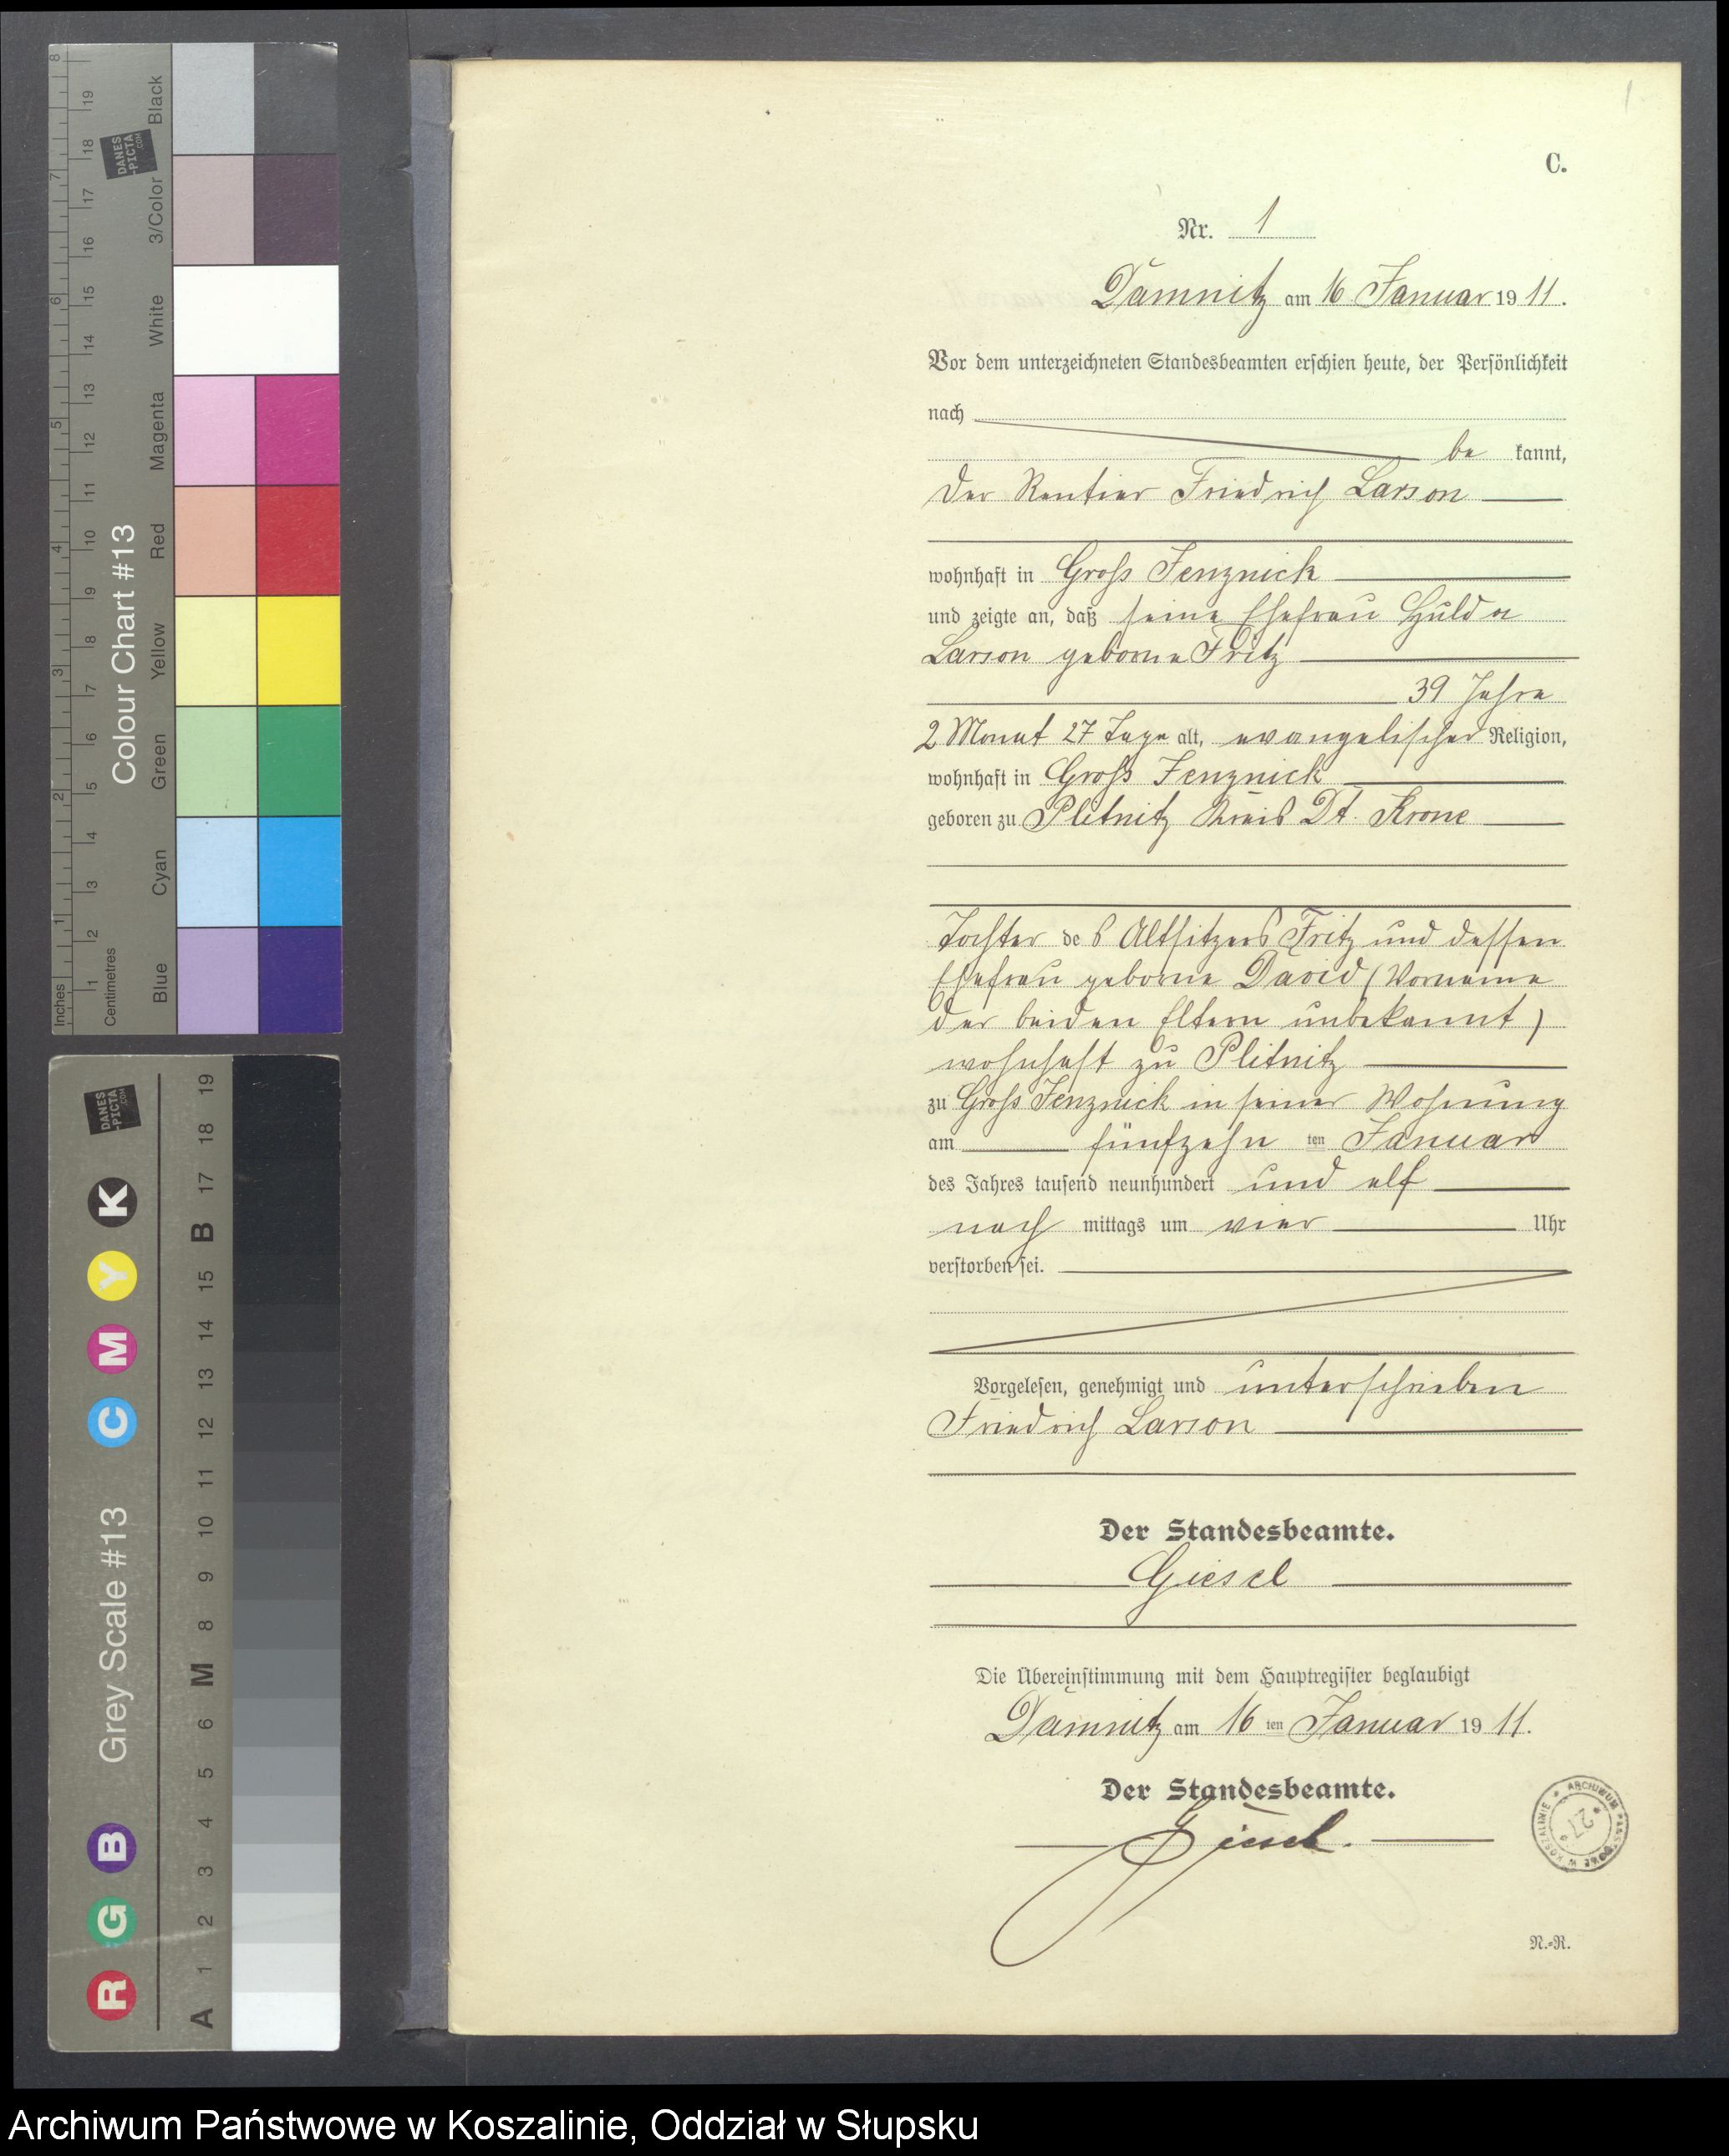 1
C.
Nr. 1
Damnitz am 16 Januar 1911.
Vor dem unterzeichneten Standesbeamten erschien heute, der Persönlichkeit
nach
be kannt,
der Rentier Friedrich Larson
wohnhaft in Groß Jenznick
und zeigte an, daß seine Ehefrau Hulda
Larson geborne Fritz
39 Jahre
2 Monat 27 Tage alt, evangelischer Religion,
wohnhaft in Groß Jenznick
geboren zu Plitnitz Kreis Dt. Krone
Tochter des Altsitzers Fritz und dessen
Ehefrau geborne David (Vorname
der beiden Eltern unbekannt)
wohnhaft zu Plitnitz
zu Groß Jenznick in seiner Wohnung
am fünfzehn ten Januar
des Jahres tausend neunhundert und elf
nach mittags um vier Uhr
verstorben sei.
Vorgelesen, genehmigt und unterschrieben
Friedrich Larson
Der Standesbeamte.
Giesel
Die Übereinstimmung mit dem Hauptregister beglaubigt
Damnitz am 16 ten Januar 1911.
Der Standesbeamte.
Giesel.
ARCHIWUM PAŃSTWOWE W KOSZALINIE
* 27 *
N.-R.
Colour Chart #13
Black
3/Color
White
Magenta
Red
Yellow
Green
Cyan
Blue
Inches
1 2 3 4 5 6 7 8
Centimetres
1 2 3 4 5 6 7 8 9 10 11 12 13 14 15 16 17 18 19
DANES
-PICTA
.COM
Grey Scale #13
R G B C M Y K
A 1 2 3 4 5 6 M 8 9 10 11 12 13 14 15 B 17 18 19
DANES
-PICTA
.COM
Archiwum Państwowe w Koszalinie, Oddział w Słupsku